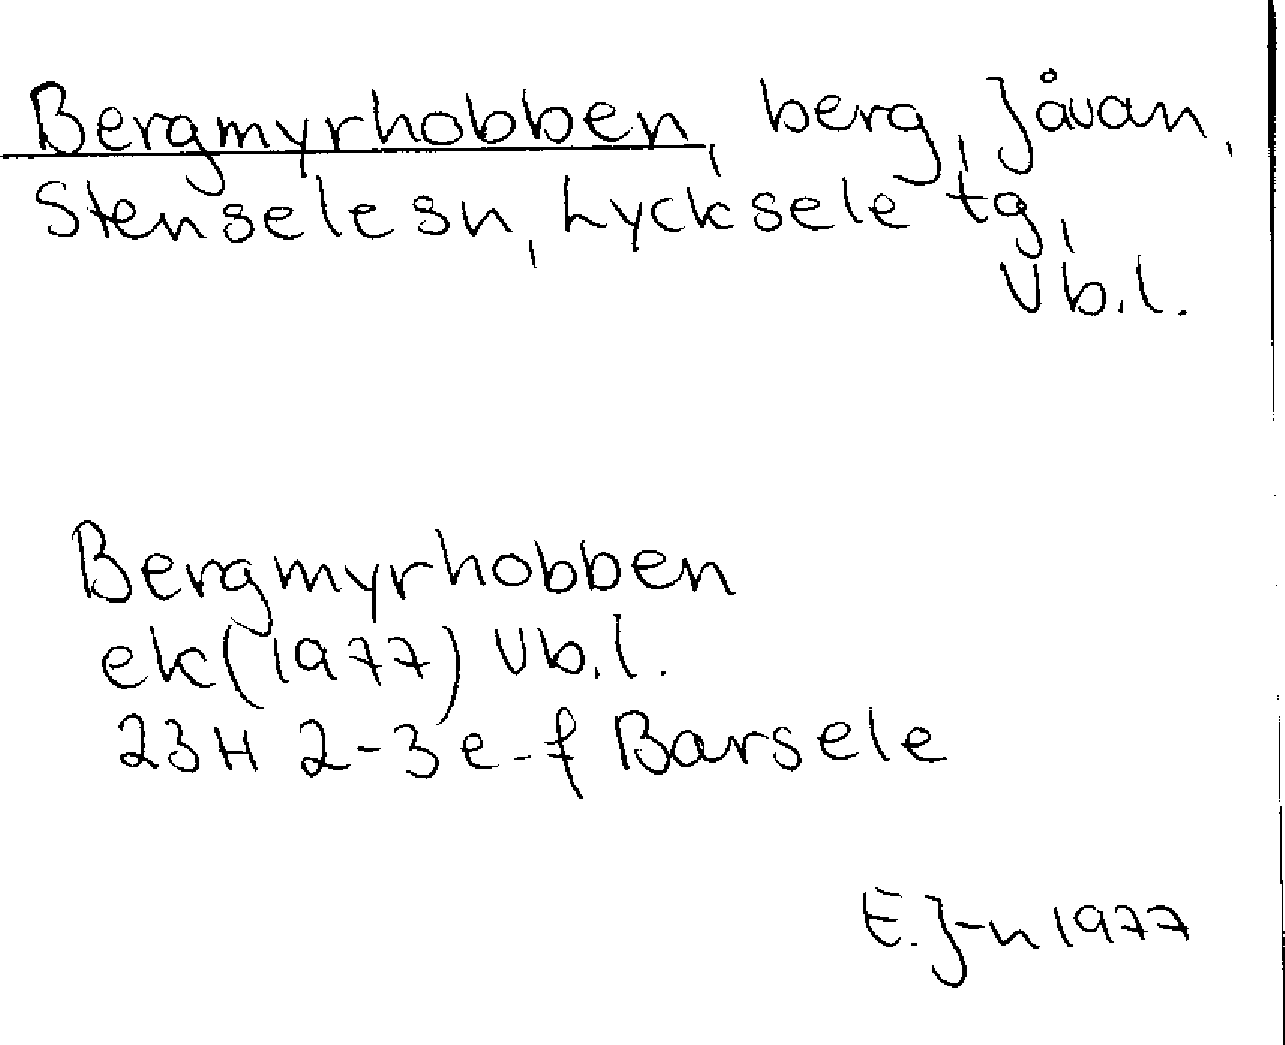 Bergmyrhobben, berg, Jåvan,
Stensele sn, Lycksele tg,
Vb.l.
Bergmyrhobben
ek (1977) Vb.l.
23H 2-3e-f Barsele
E.J-n 1977